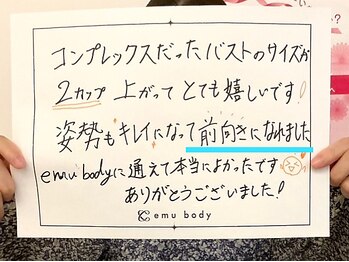 コンプレックスだったバストのサイズが
2カップ 上がって とても嬉しいです!
姿勢もキレイになって前向きになれました
emu bodyに通えて本当によかったです
ありがとうございました!
emu body